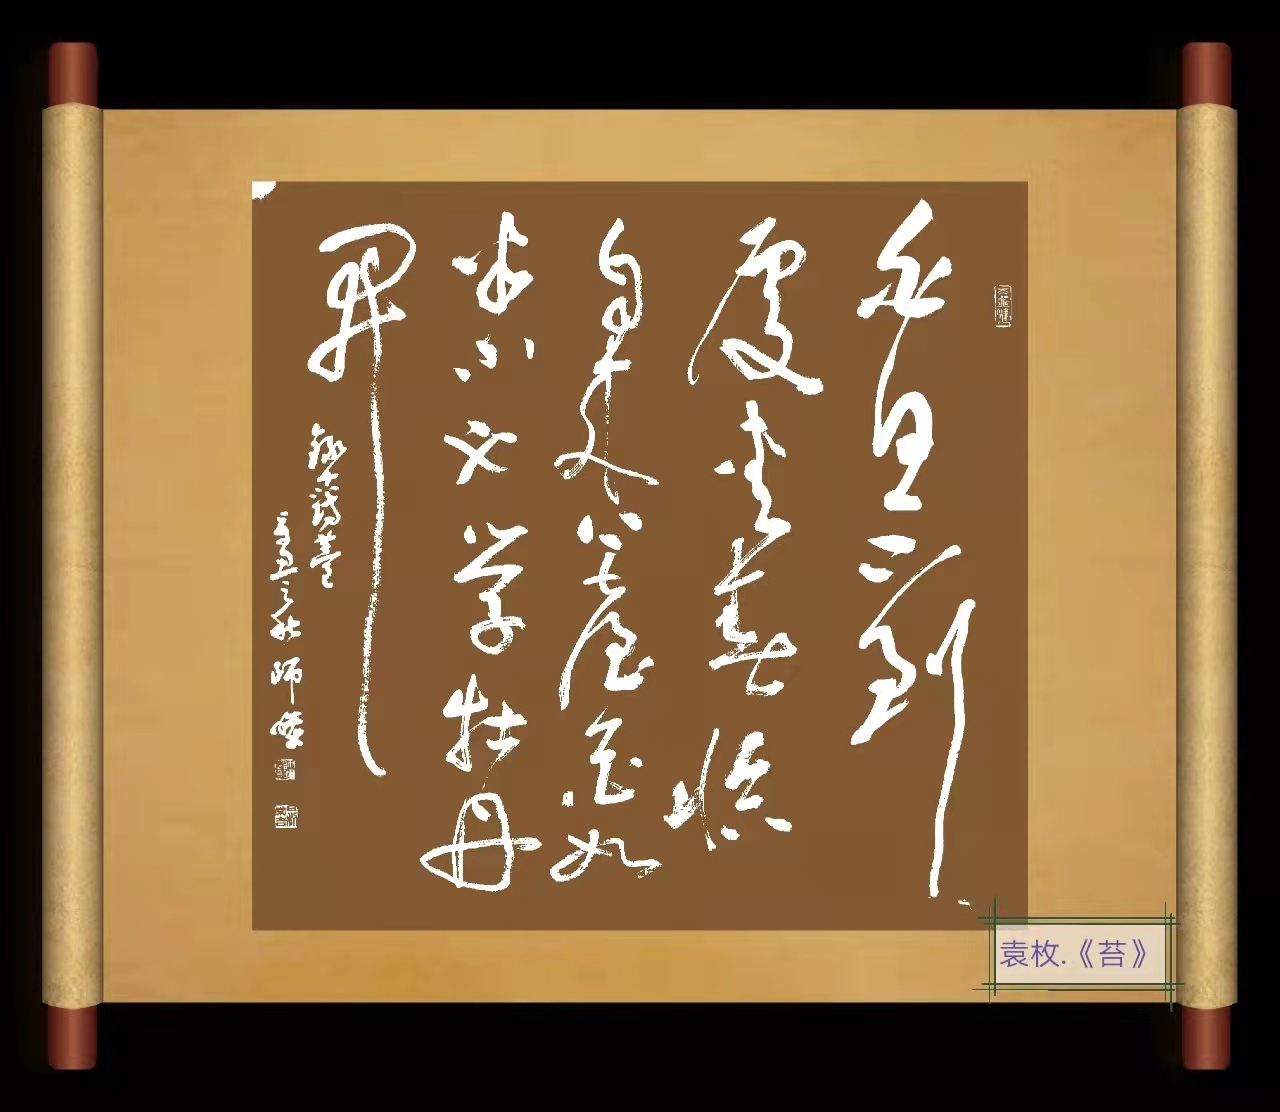 白日不到
處青春恰
自来苔花如
米小也学牡丹
開
辛丑之秋师
袁枚.《苔》